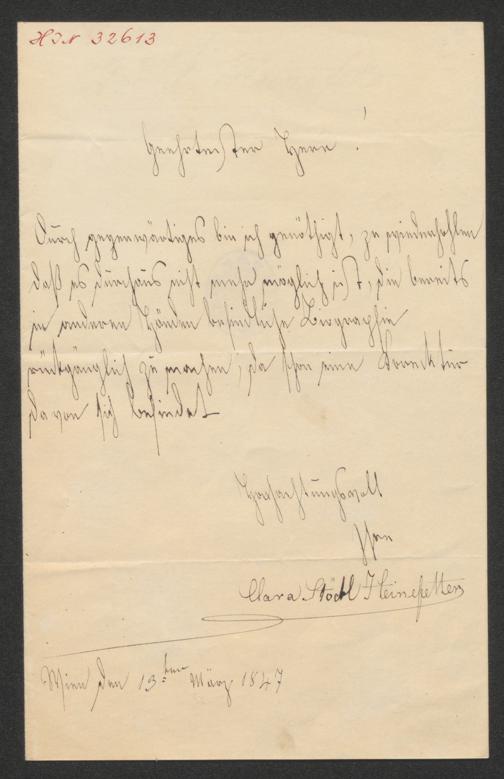 HIN 32613
Geehrtester Herr!
Durch gegenwärtiges bin ich genöthigt, zu wiederhohlen
daß es durchaus nicht mehr möglich ist, die bereits
in anderen Händen befindliche Biographie
rückgänglich zu machen, da schon eine Korrektur
davon sich befindet
Hochachtungsvoll
Ihre
Clara Stöckl Heinefetter
Wien den 13ten März 1847